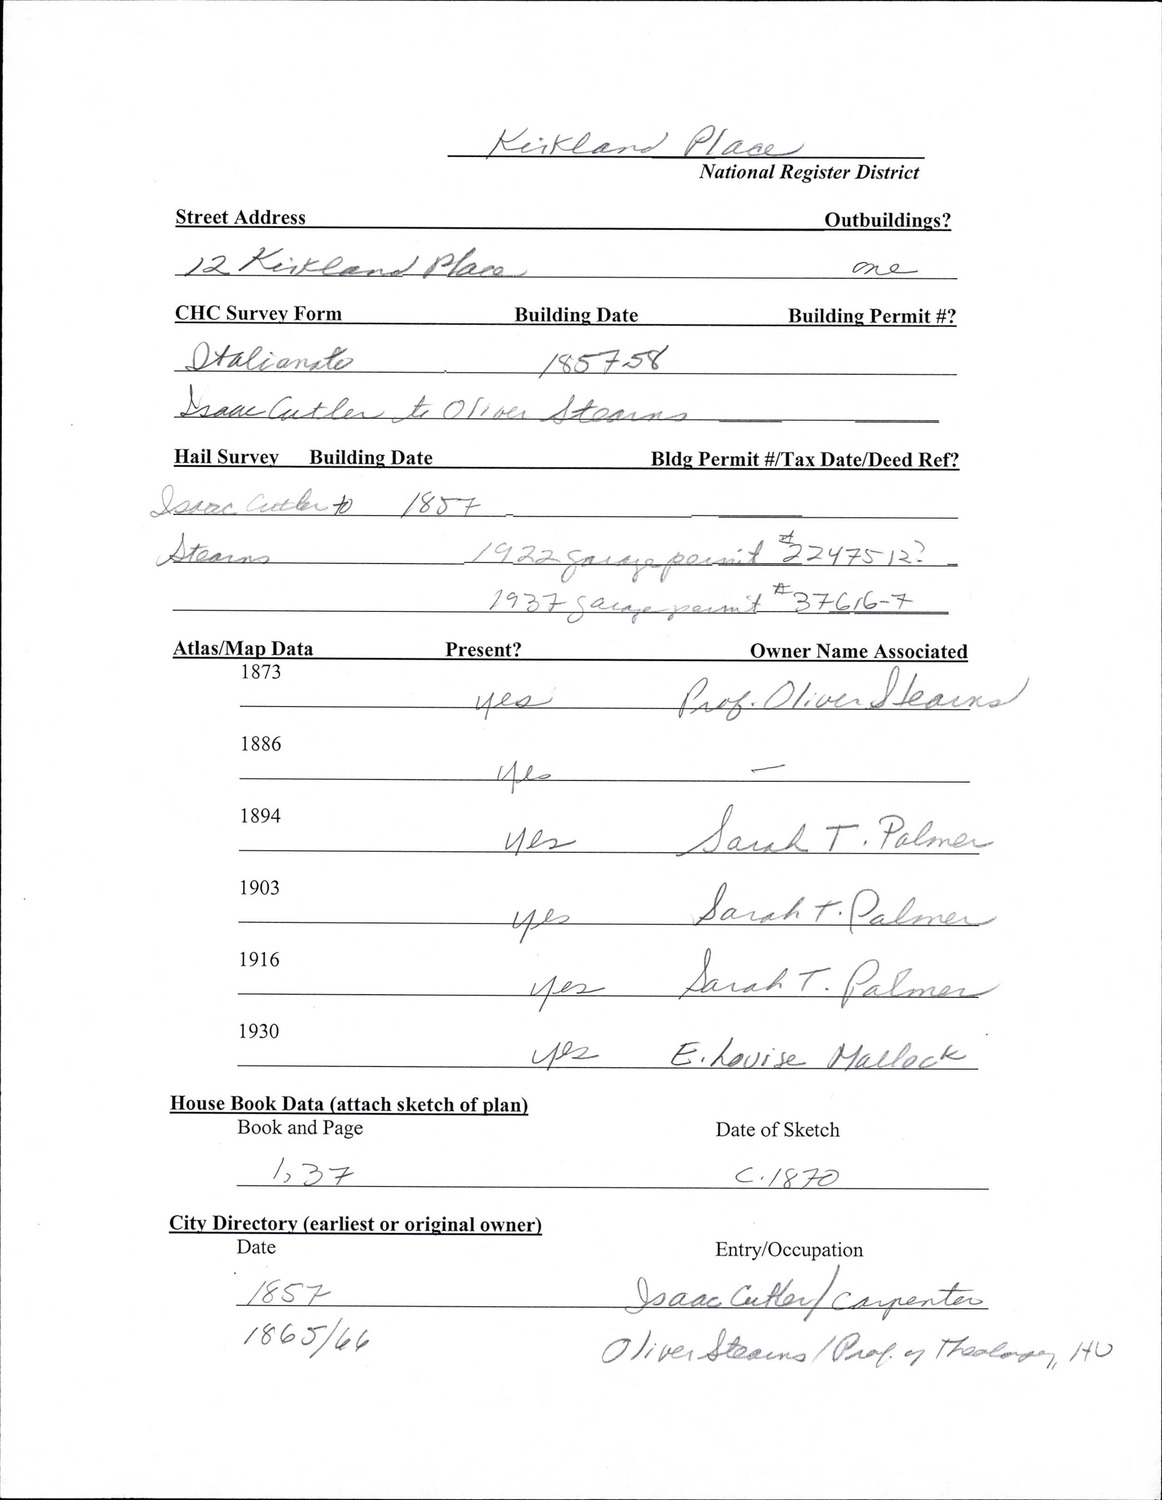 Kirkland Place
National Register District
Street Address Outbuildings?
12 Kirkland Place one
CHC Survey Form Building Date Building Permit #?
Italianate 1857-58
Isaac Cutler to Oliver Stearns
Hail Survey Building Date Bldg Permit #/Tax Date/Deed Ref?
Isaac Cutler to 1857
Stearns 1922 garage permit #22475 12?
1937 garage permit #37616-7
Atlas/Map Data Present? Owner Name Associated
1873
yes Prof. Oliver Stearns
1886
yes —
1894
yes Sarah T. Palmer
1903
yes Sarah T. Palmer
1916
yes Sarah T. Palmer
1930
yes E. Louise Mallock
House Book Data (attach sketch of plan)
Book and Page Date of Sketch
1, 37 c. 1870
City Directory (earliest or original owner)
Date Entry/Occupation
1857 Isaac Cutler/carpenter
1865/66 Oliver Stearns/Prof. of Theology, HU